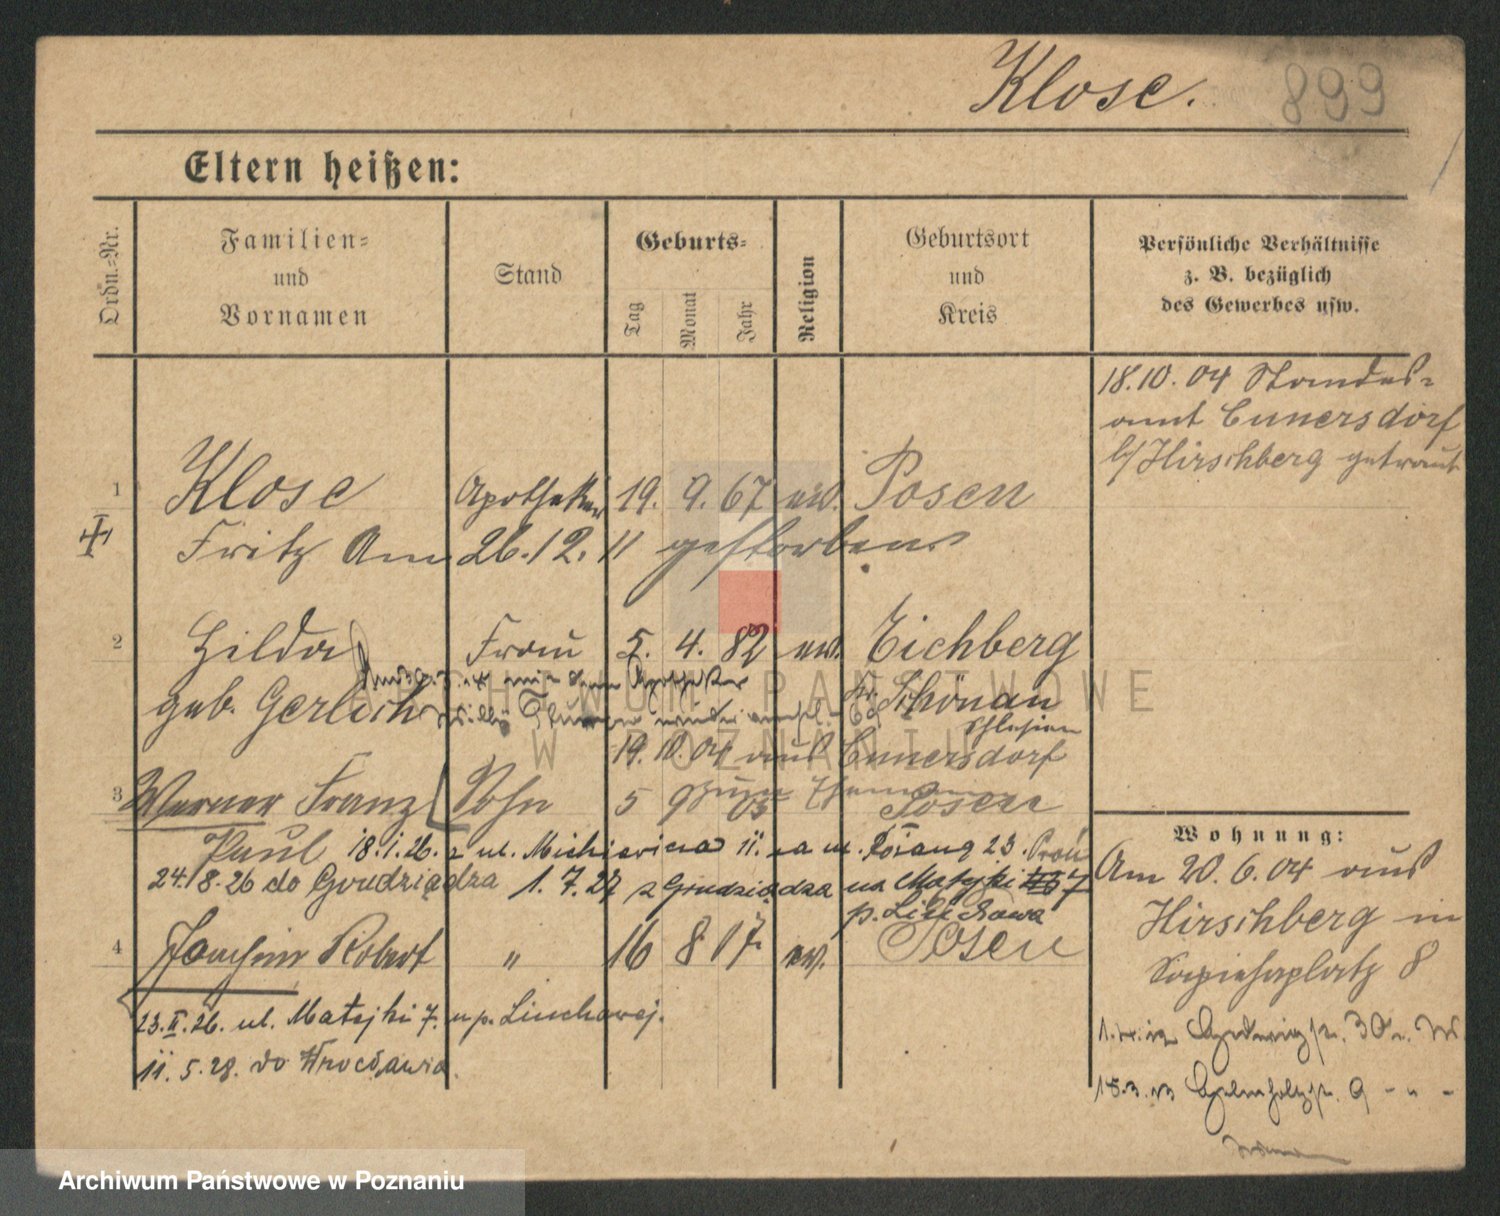 Klose.
899
Eltern heißen:
Ordn.=Nr.
Familien=
und
Vornamen
Stand
Geburts=
Tag
Monat
Jahr
Religion
Geburtsort
und
Kreis
Persönliche Verhältnisse
z. B. bezüglich
des Gewerbes usw.
18.10.04 Standes=
amt Cunersdorf
b/Hirschberg getraut
1 Klose Apotheker 19. 9. 67 ev. Posen
Fritz Am 26.12.11 gestorben
2 Hilda Frau 5. 4. 82 ev. Eichberg
geb. Gerlich
Kr. Schönau
Schlesien
19.10.04 aus Cunersdorf
3 Werner Franz Sohn 5 9 05 Posen
Paul 18.1.26. z ul. Mickiewicza 11. na ul.
24.8.26 do Grudziądza 1.7.27 z Grudziądza na Matejki 7
p. Linchawa
4 Joachim Robert " 16 8 17 ev. Posen
23.II.26. ul. Matejki 7. u p. Linchawej.
11.5.28. do Wrocławia.
Wohnung:
Am 20.6.04 aus
Hirschberg in
Sapiehaplatz 8
ARCHIWUM PAŃSTWOWE
W POZNANIU
Archiwum Państwowe w Poznaniu